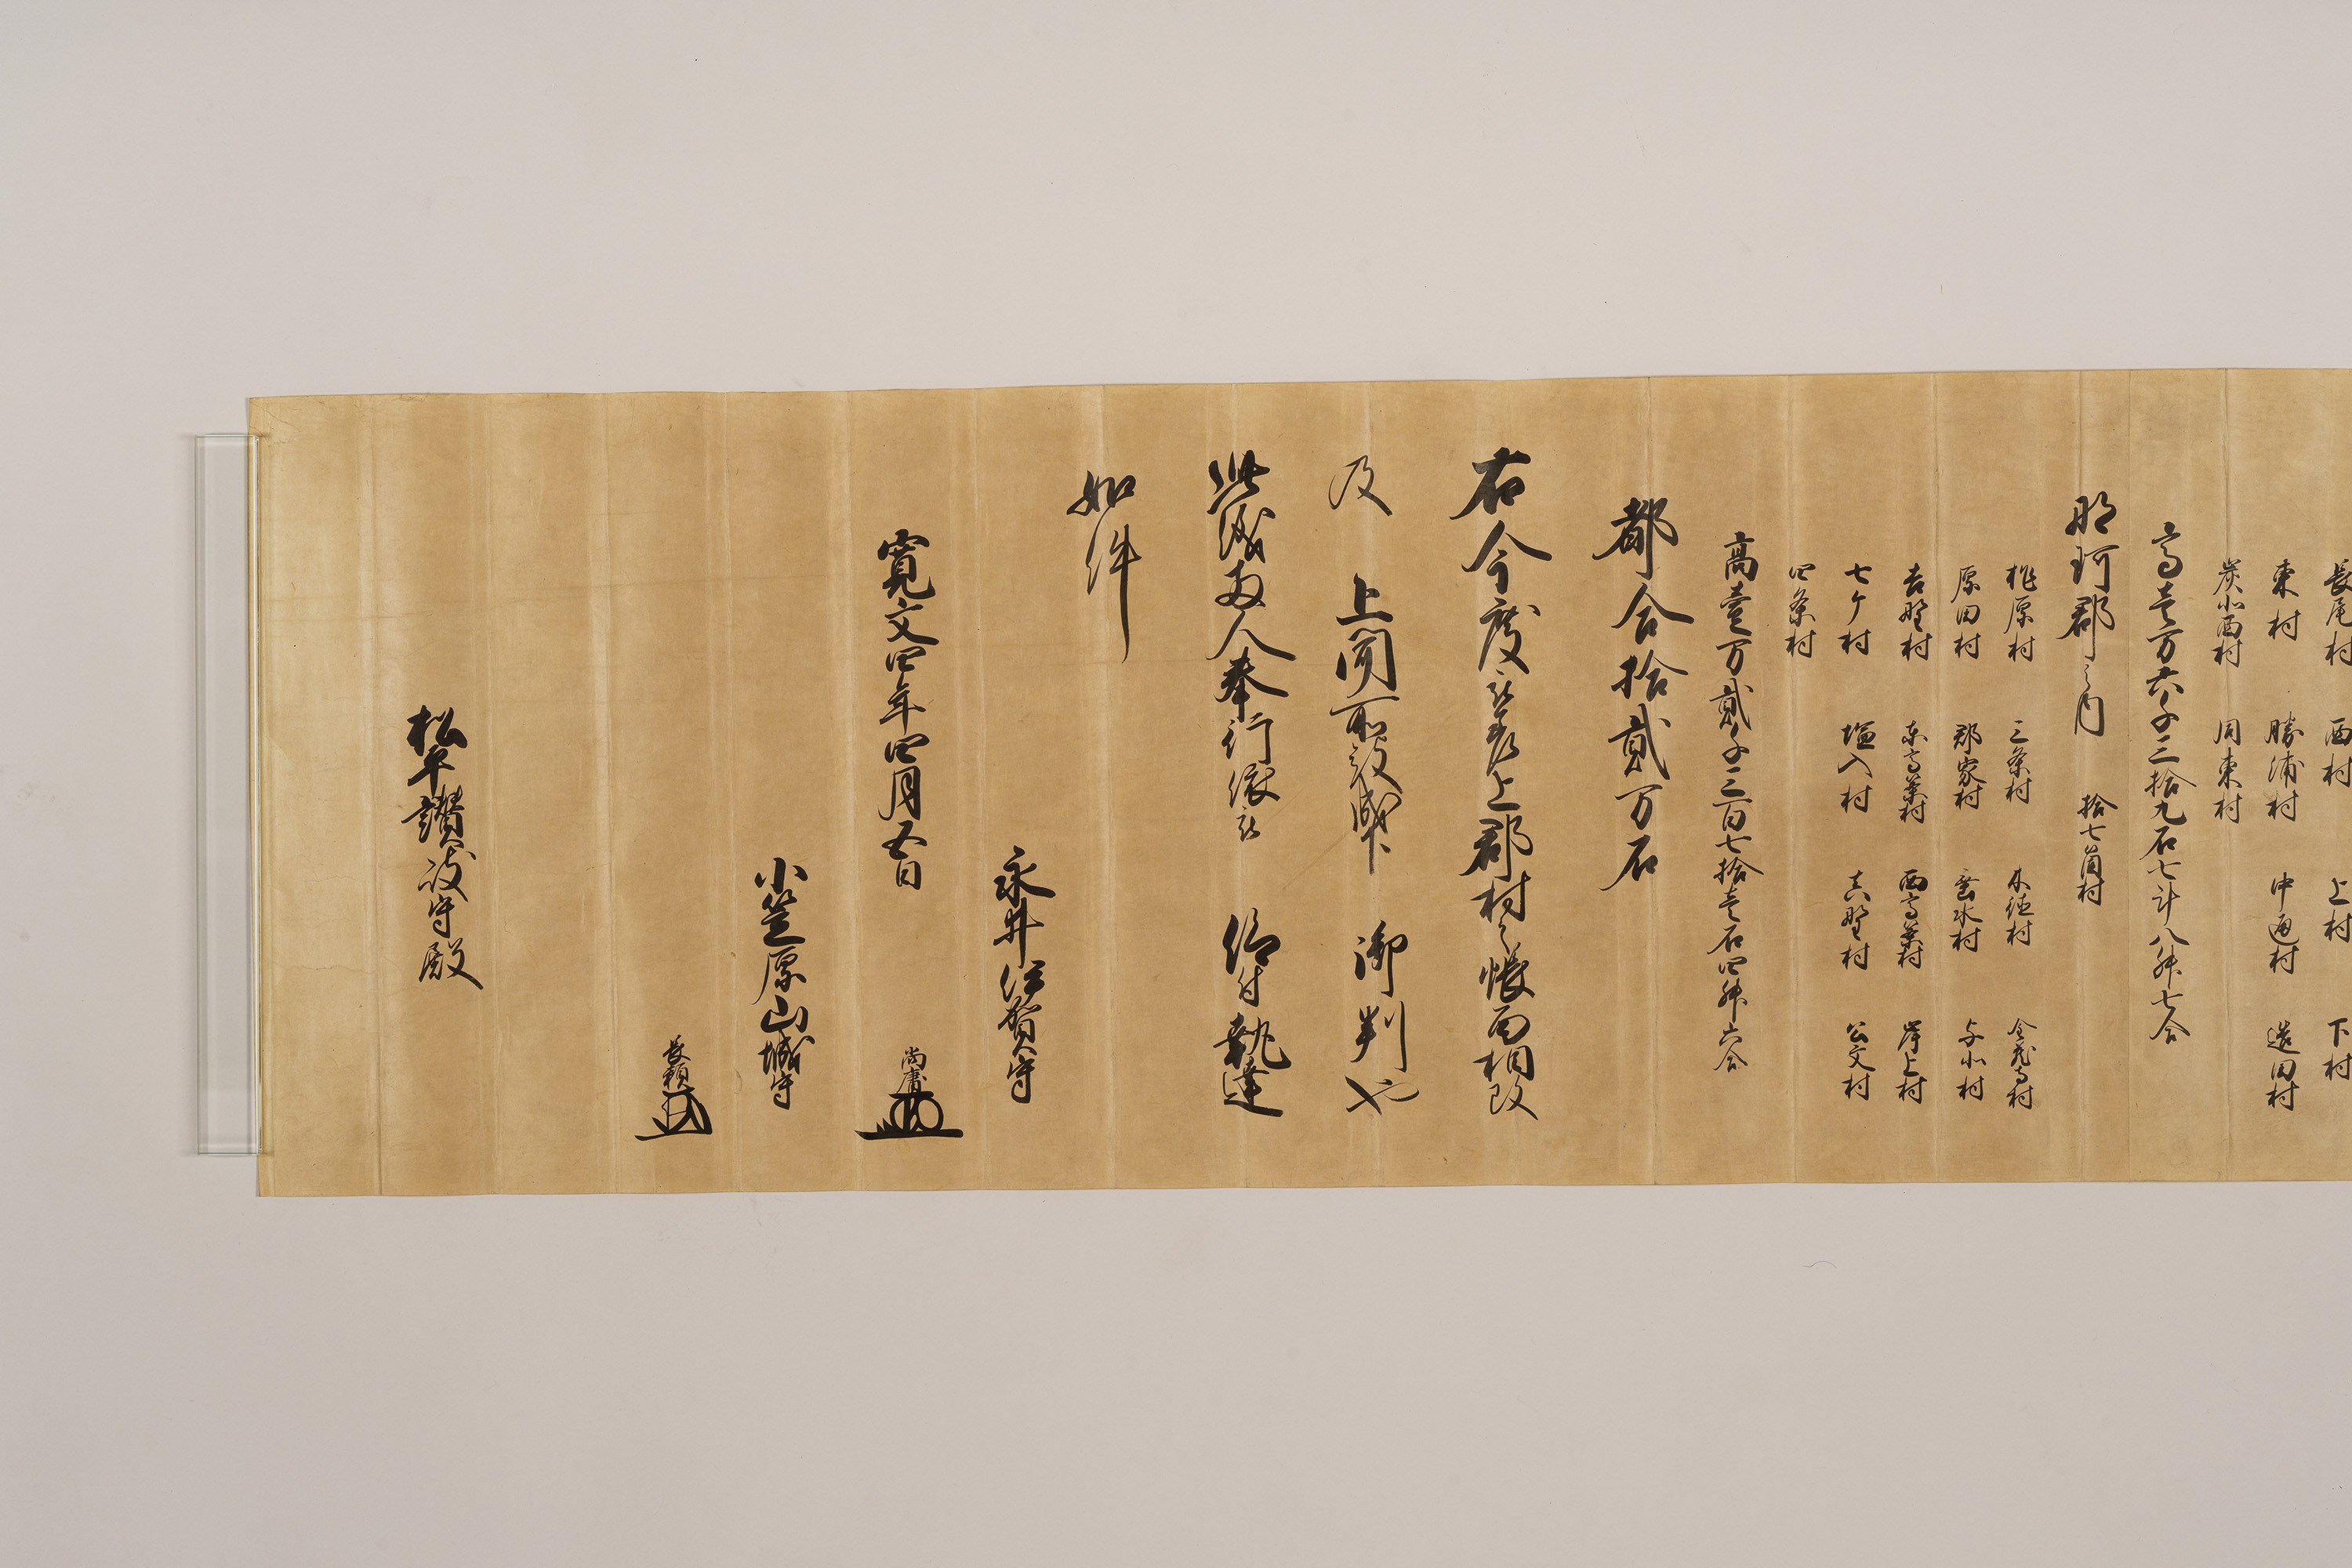 長尾村 西村 上村 下村
東村 勝浦村 中通村 造田村
炭所西村 同東村
高壱万六千三拾九石七斗八舛七合
那珂郡之内 拾七箇村
榎原村 三条村 木徳村 金蔵寺村
原田村 郡家村 垂水村 与北村
吉野村 東高篠村 西高篠村 岸上村
七ケ村 塩入村 真野村 公文村
四条村
高壱万貳千三百七拾壱石四舛六合
都合拾貳万石
右今度被差上郡村之帳面相改
及 上聞所被成下 御判也
此儀両人奉行依被 仰付執達
如件
永井伊賀守
寛文四年四月五日 尚庸
小笠原山城守
長頼
松平讃岐守殿